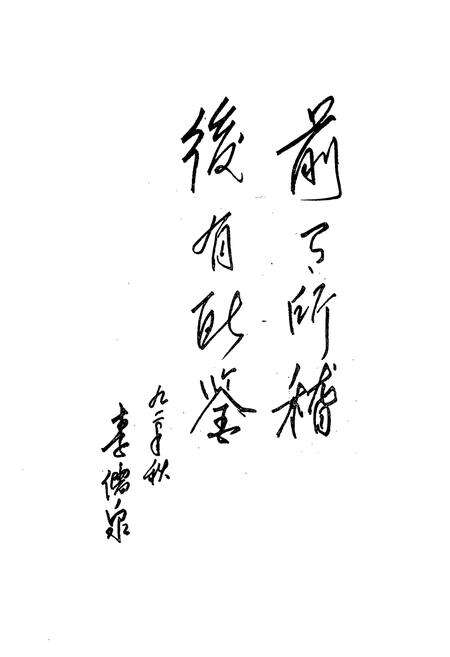 前有所稽
後有所鉴
九二年秋
李储泉